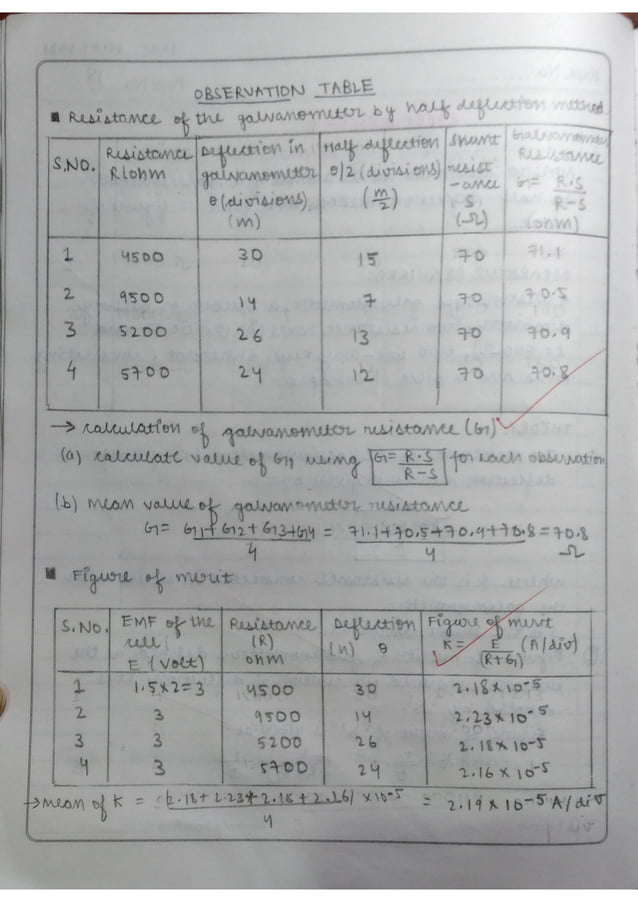 OBSERVATION TABLE
Resistance of the galvanometer by half deflection method.
S.NO. | Resistance R(ohm | Deflection in galvanometer θ (divisions) (m) | Half deflection θ/2 (divisions) (m/2) | Shunt resist-ance S (Ω) | Galvanometer Resistance G = R·S/R-S (ohm)
1 | 4500 | 30 | 15 | 70 | 71.1
2 | 9500 | 14 | 7 | 70 | 70.5
3 | 5200 | 26 | 13 | 70 | 70.9
4 | 5700 | 24 | 12 | 70 | 70.8
→ calculation of galvanometer resistance (G)
(a) calculate value of G, using G = R·S/R-S for each observation
(b) mean value of galvanometer resistance
G = G1+G2+G3+G4/4 = 71.1+70.5+70.9+70.8/4 = 70.8 Ω
Figure of merit
S.No. | EMF of the cell E (volt) | Resistance (R) ohm | Deflection (n) θ | Figure of merit K = E/(R+G)θ (A/div)
1 | 1.5×2=3 | 4500 | 30 | 2.18×10-5
2 | 3 | 9500 | 14 | 2.23×10-5
3 | 3 | 5200 | 26 | 2.18×10-5
4 | 3 | 5700 | 24 | 2.16×10-5
→ mean of K = (2.18+2.23+2.18+2.16)×10-5/4 = 2.19×10-5 A/div